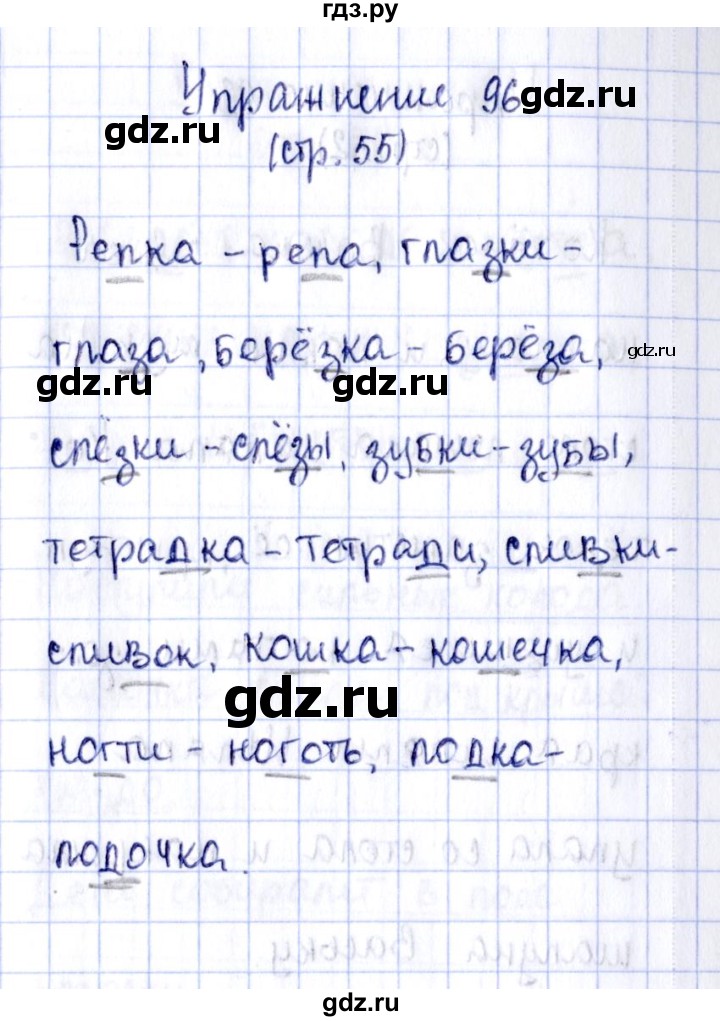 гдз.ру
Упражнение 96
gdz.ru
gdz.ru
(стр. 55)
Репка - репа, глазки -
глаза, берёзка - берёза,
gdz.ru
gdz.ru
gdz.ru
слёзки - слёзы, зубки - зубы,
тетрадка - тетради, сливки -
сливок, кошка - кошечка,
gdz.ru
ногти - ноготь, лодка -
лодочка.
gdz.ru